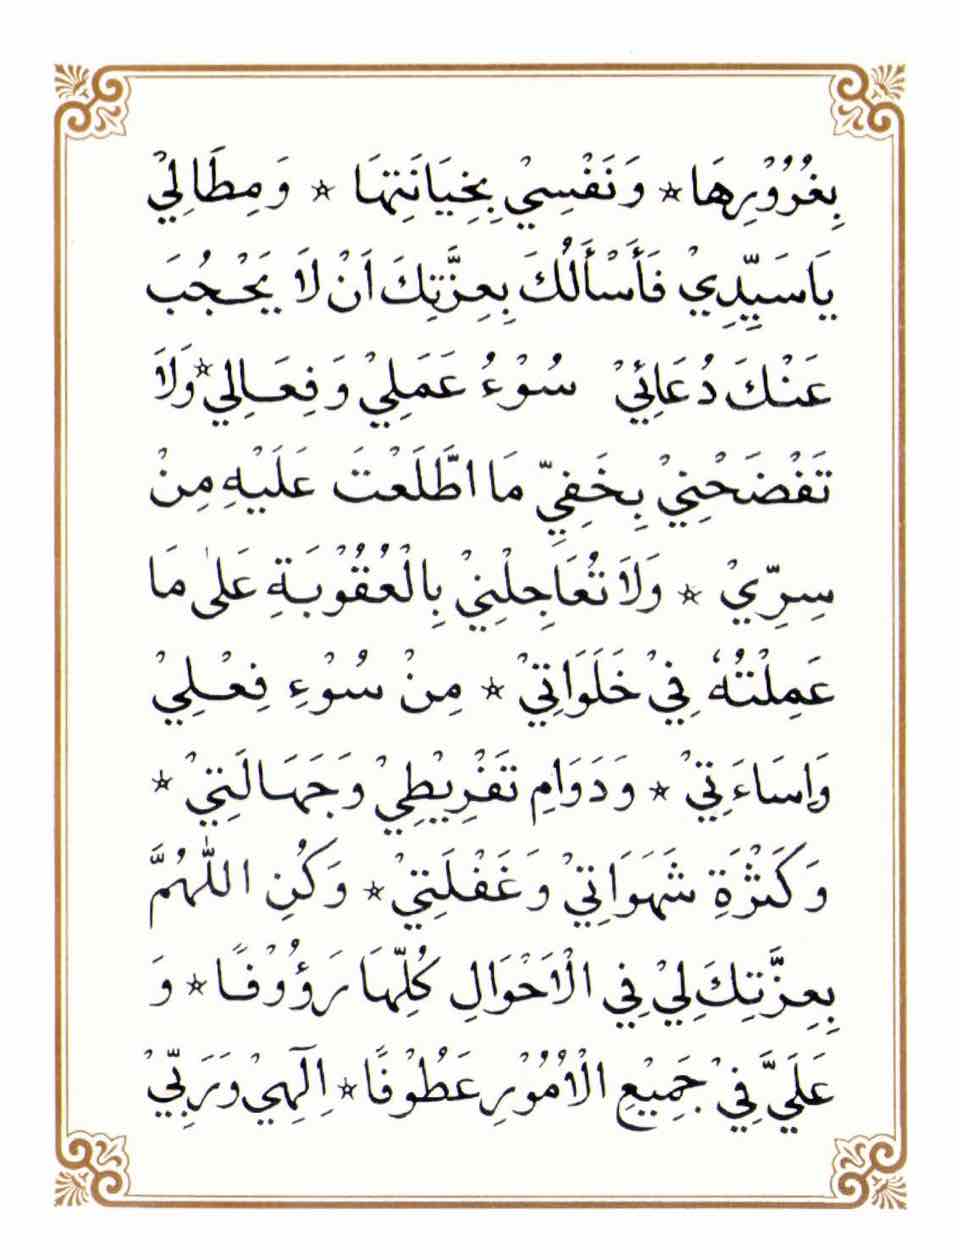 بِغُرُوْرِهَا ☆ وَنَفْسِيْ بِخِيَانَتِهَا ☆ وَمِطَالِيْ
يَاسَيِّدِيْ فَأَسْأَلُكَ بِعِزَّتِكَ اَنْ لَا يَحْجُبَ
عَنْكَ دُعَائِيْ سُوْءُ عَمَلِيْ وَفِعَالِيْ ☆ وَلَا
تَفْضَحْنِيْ بِخَفِيِّ مَا اطَّلَعْتَ عَلَيْهِ مِنْ
سِرِّيْ ☆ وَلَا تُعَاجِلْنِيْ بِالْعُقُوْبَةِ عَلٰى مَا
عَمِلْتُهُ فِيْ خَلَوَاتِيْ ☆ مِنْ سُوْءِ فِعْلِيْ
وَاِسَاءَتِيْ ☆ وَدَوَامِ تَفْرِيْطِيْ وَجَهَالَتِيْ ☆
وَكَثْرَةِ شَهَوَاتِيْ وَغَفْلَتِيْ ☆ وَكُنِ اللّٰهُمَّ
بِعِزَّتِكَ لِيْ فِي الْاَحْوَالِ كُلِّهَا رَؤُوْفًا ☆ وَ
عَلَيَّ فِيْ جَمِيْعِ الْاُمُوْرِ عَطُوْفًا ☆ اِلٰهِيْ وَرَبِّيْ